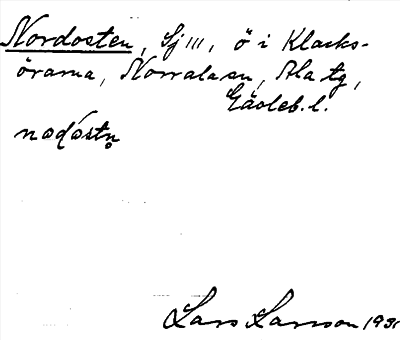 Nordosten, Sj III, ö i Klacks-
örarna, Norralaan, Ala tg,
Gävleb. l.
nɷdóstn̥
Lars Larsson 1931